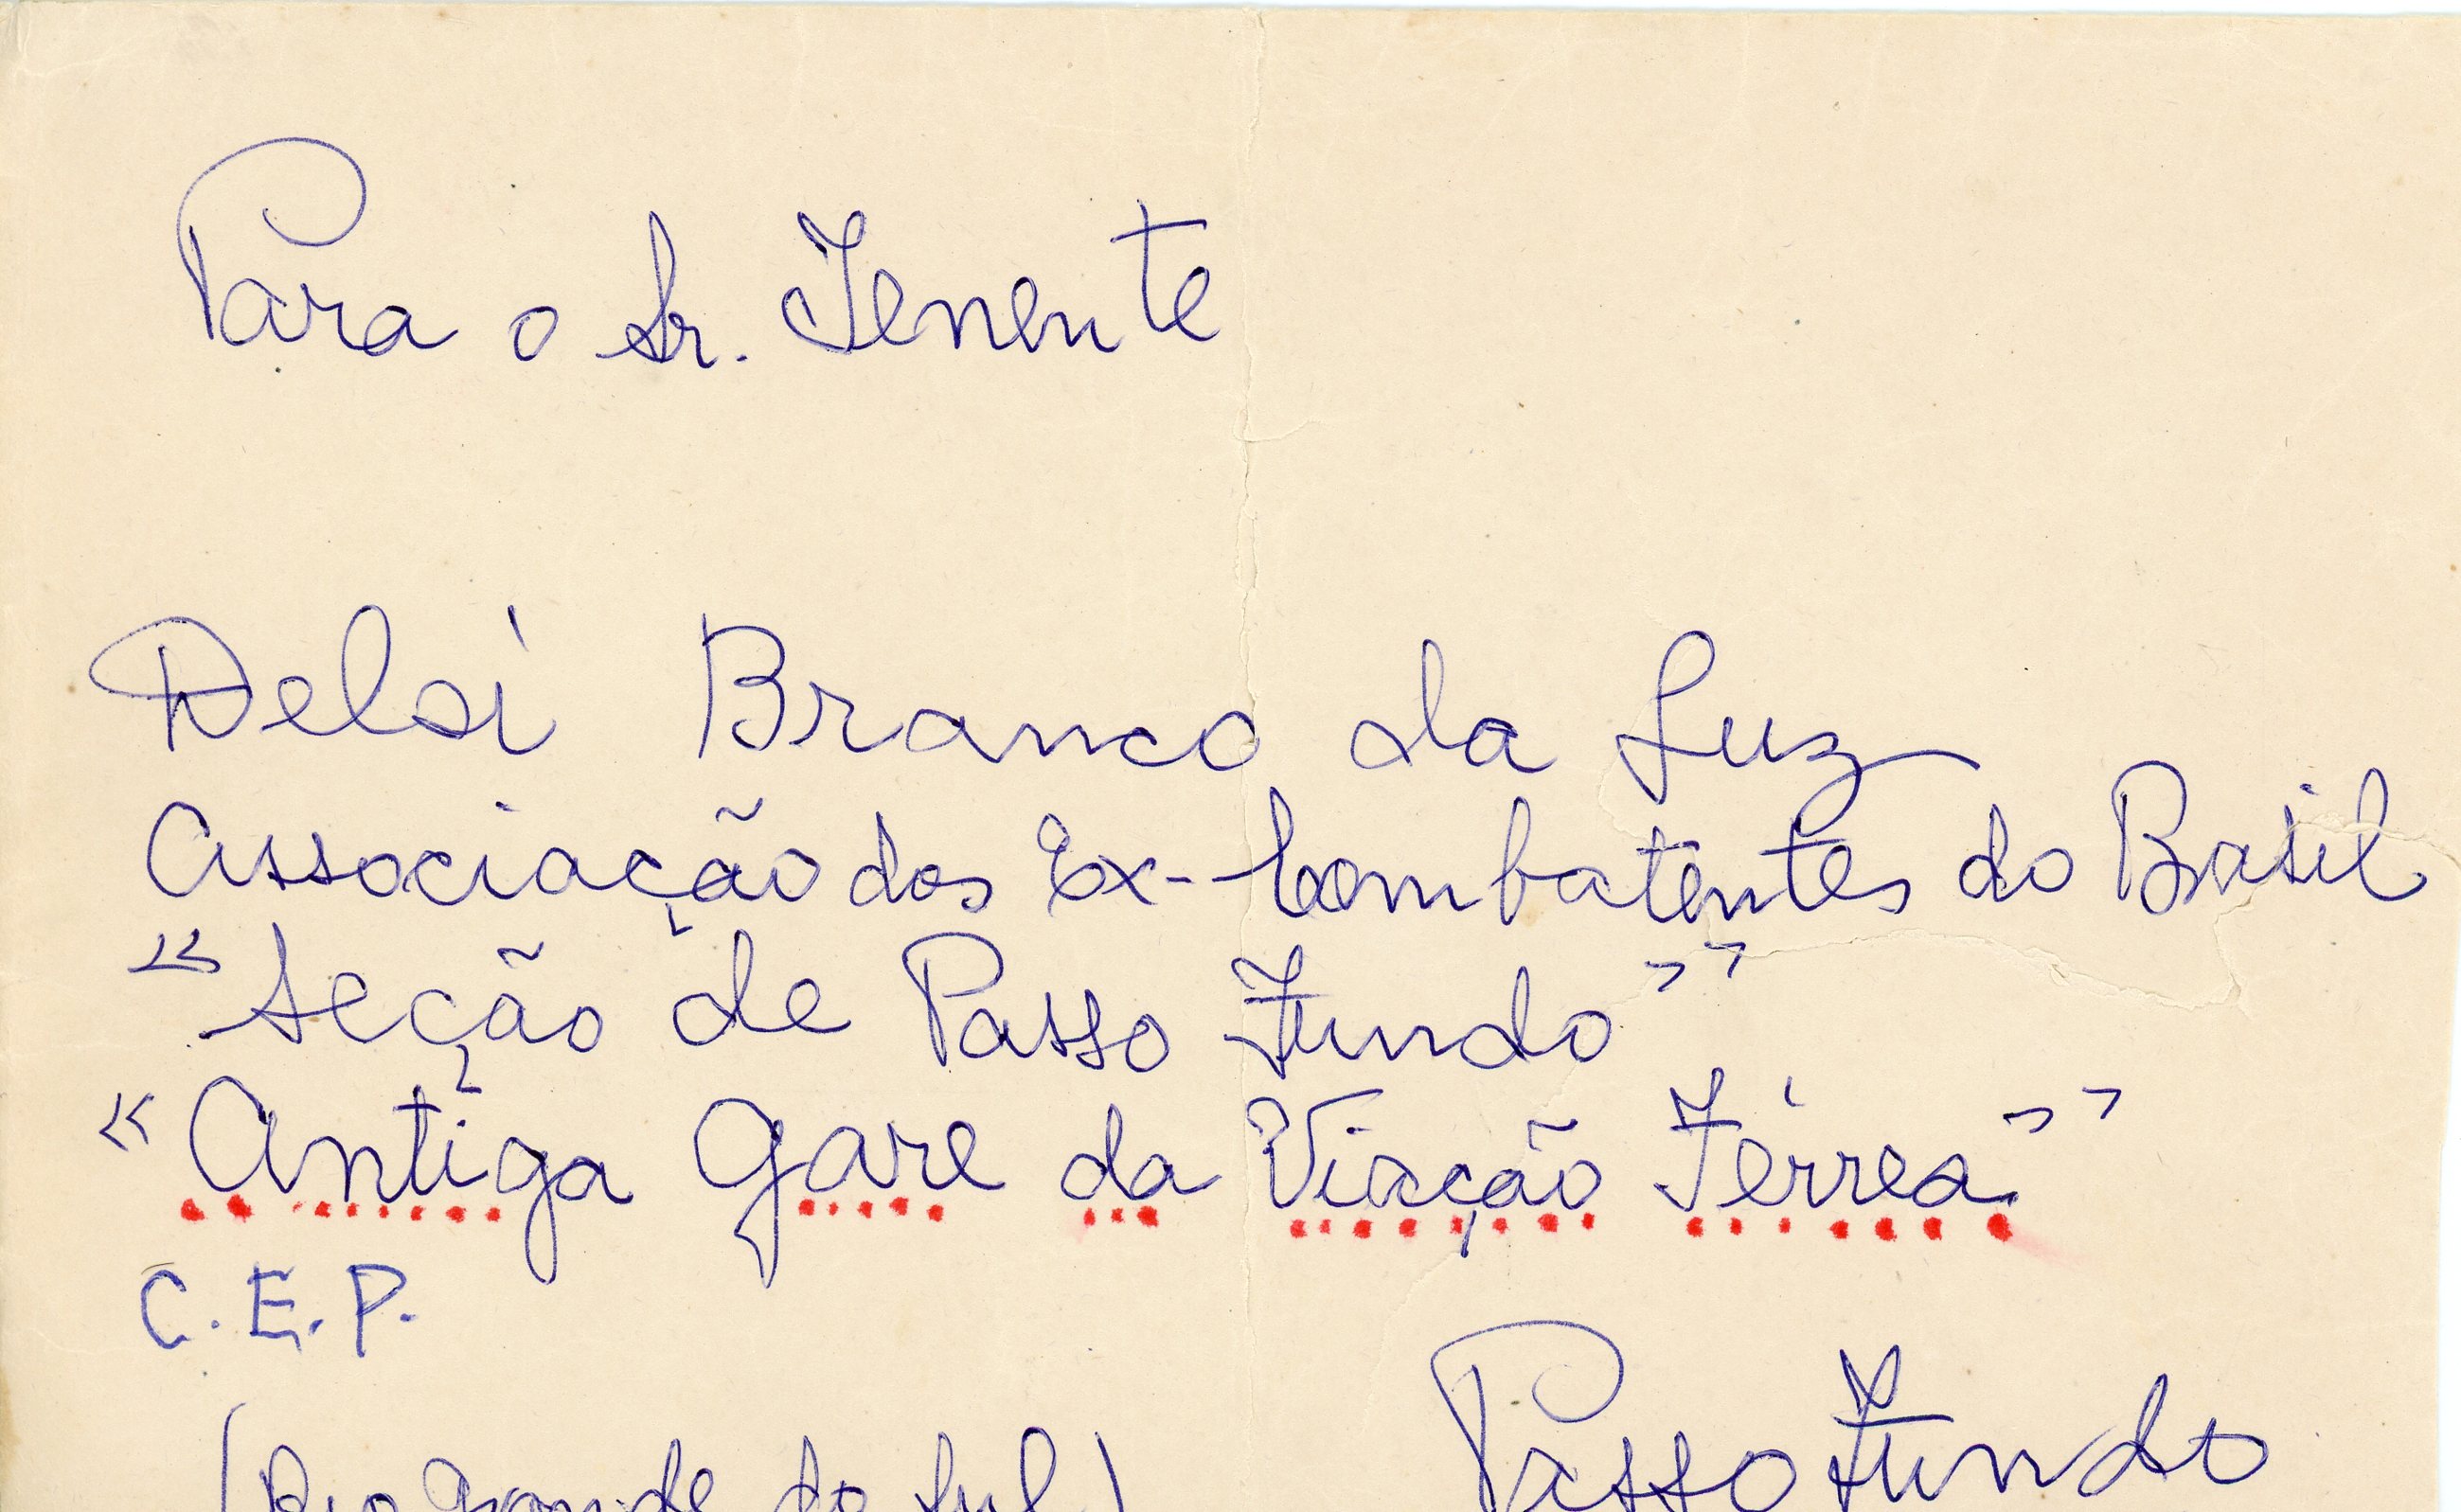 Para o Sr. Tenente
Delsi Branco da Luz
Associação dos Ex-Combatentes do Basil
“Secção de Passo Fundo”
“Antiga Gare da Viação Férrea”
C.E.P.
Passo Fundo
(Rio Grande do Sul)